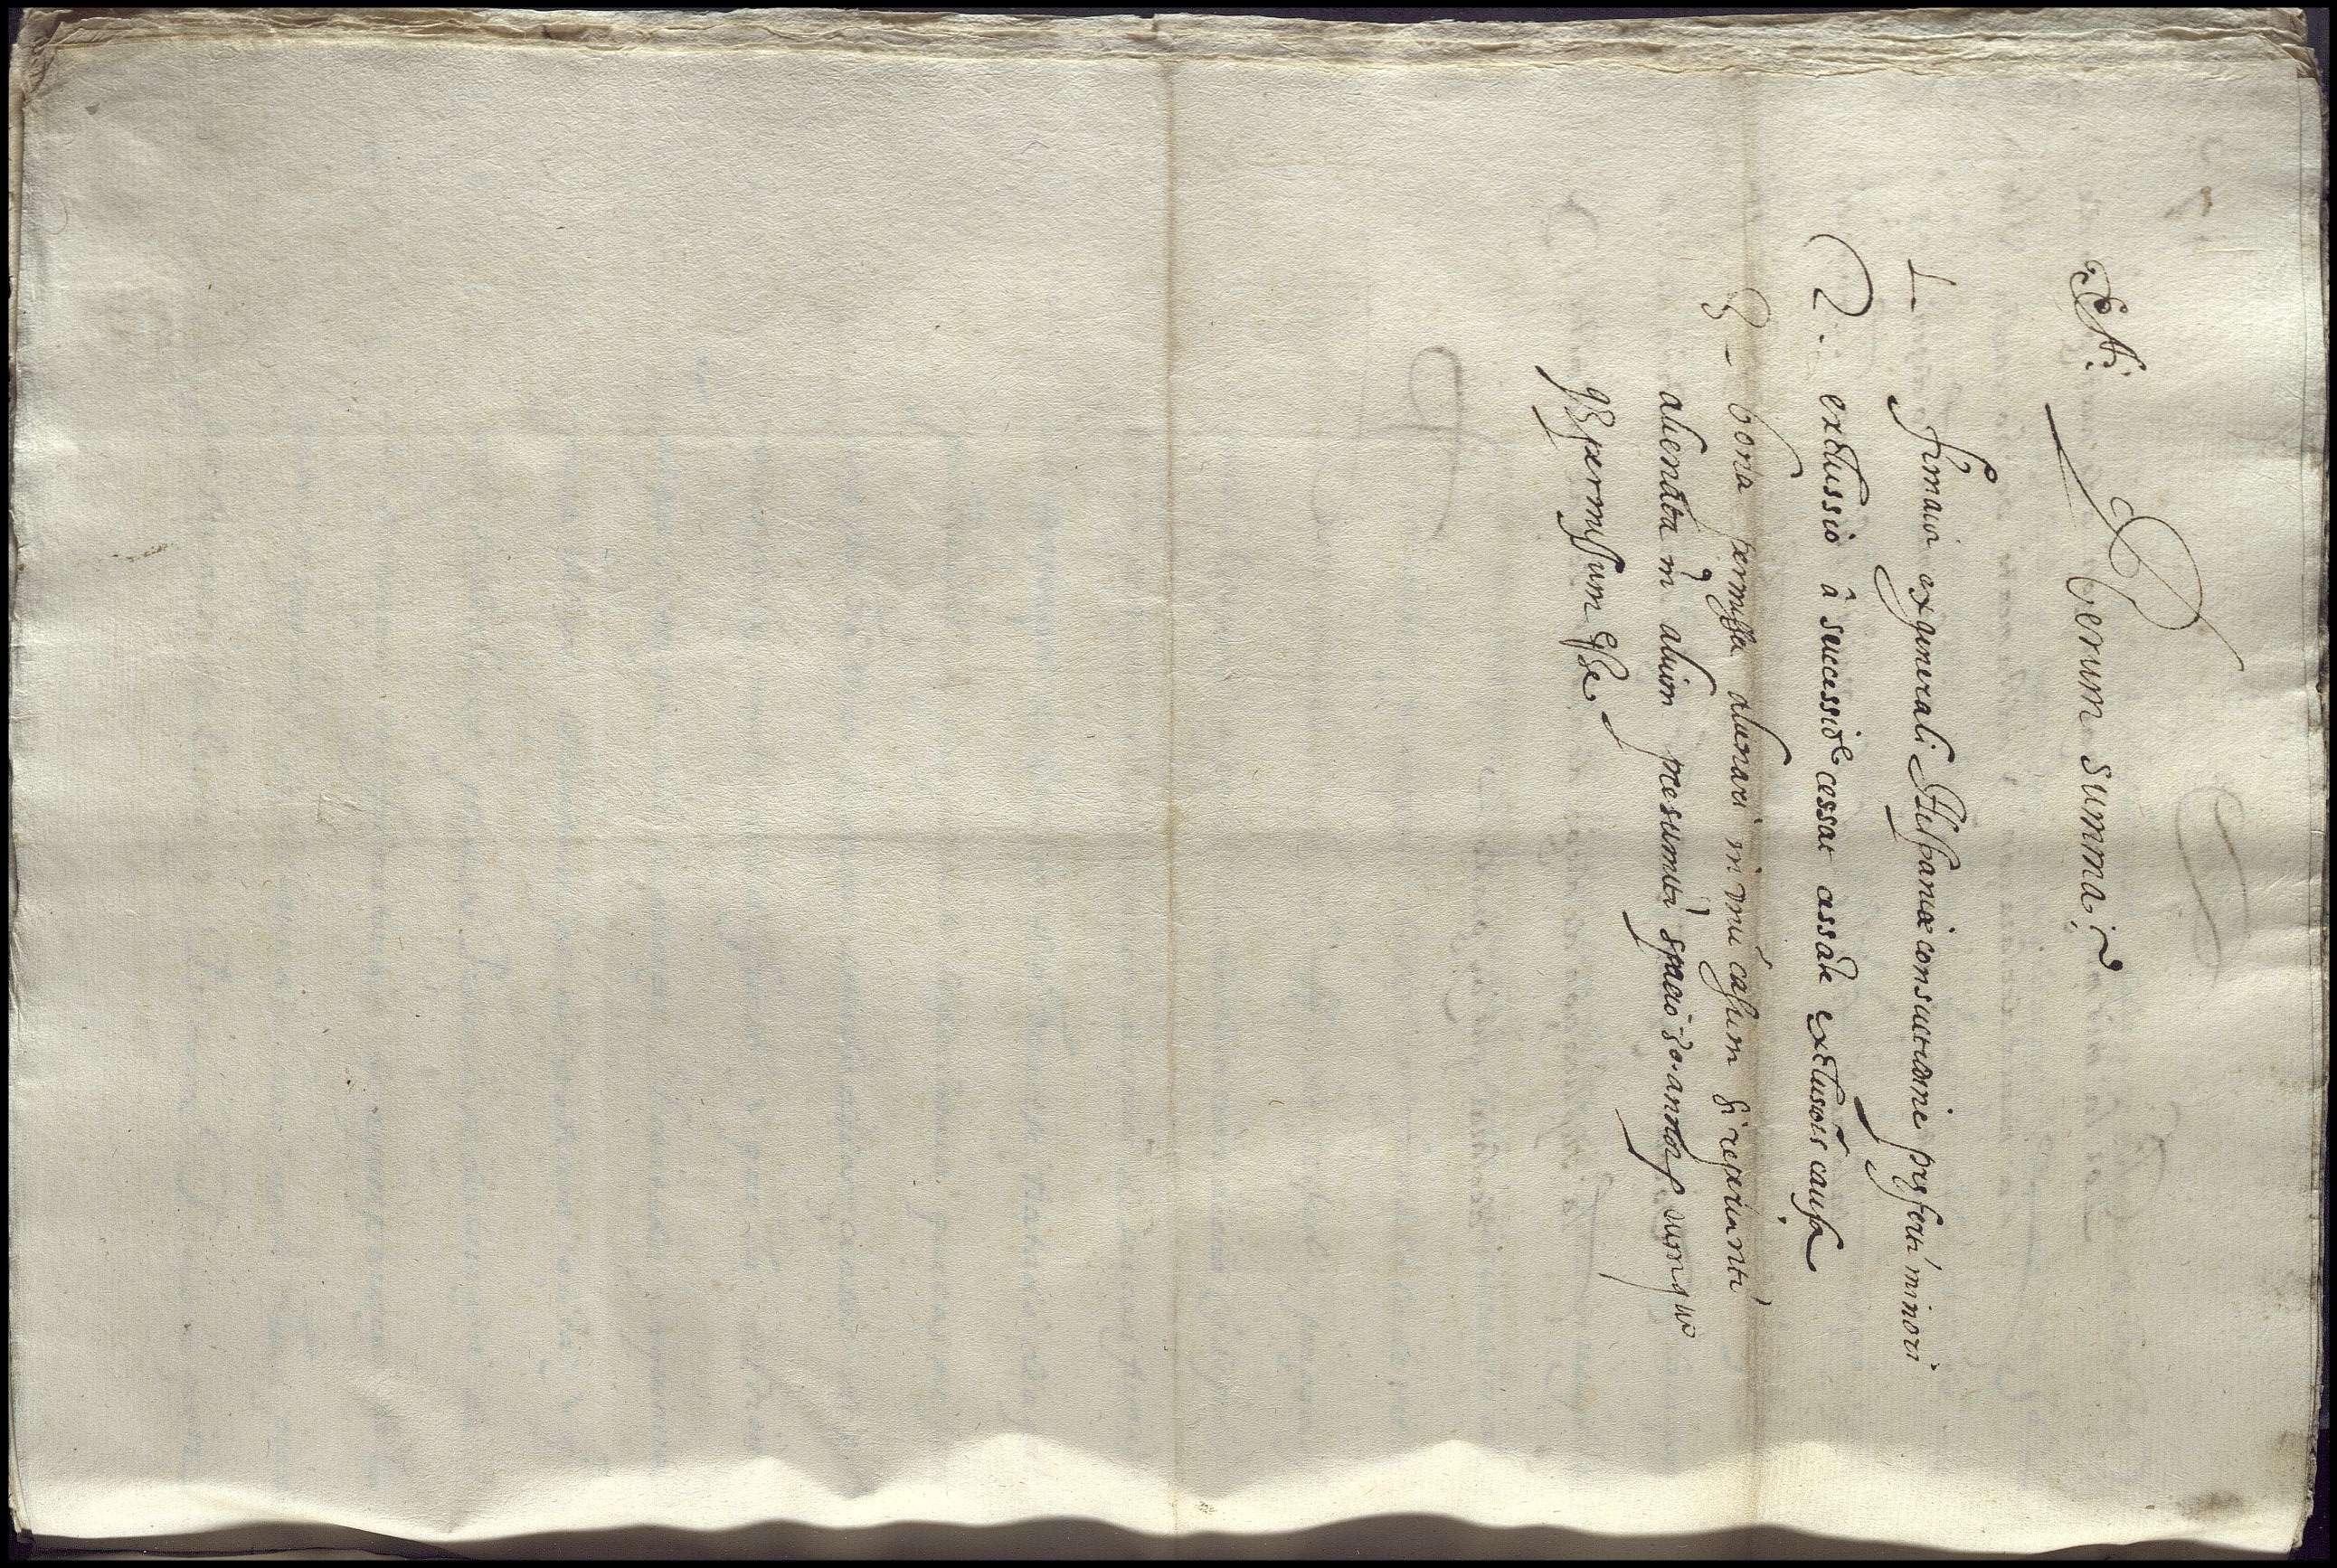 Rerum summa;
1 firmaia ex generali Hispaniæ consuetudine præferri minori
2. exclussio â successiōe cessat cessāte exclusiōis causa
3 - bona permissa alienari in vnū casum si reperiantr
alienata in alium presumitr spacio 30. annōr cum quo
permissum esse